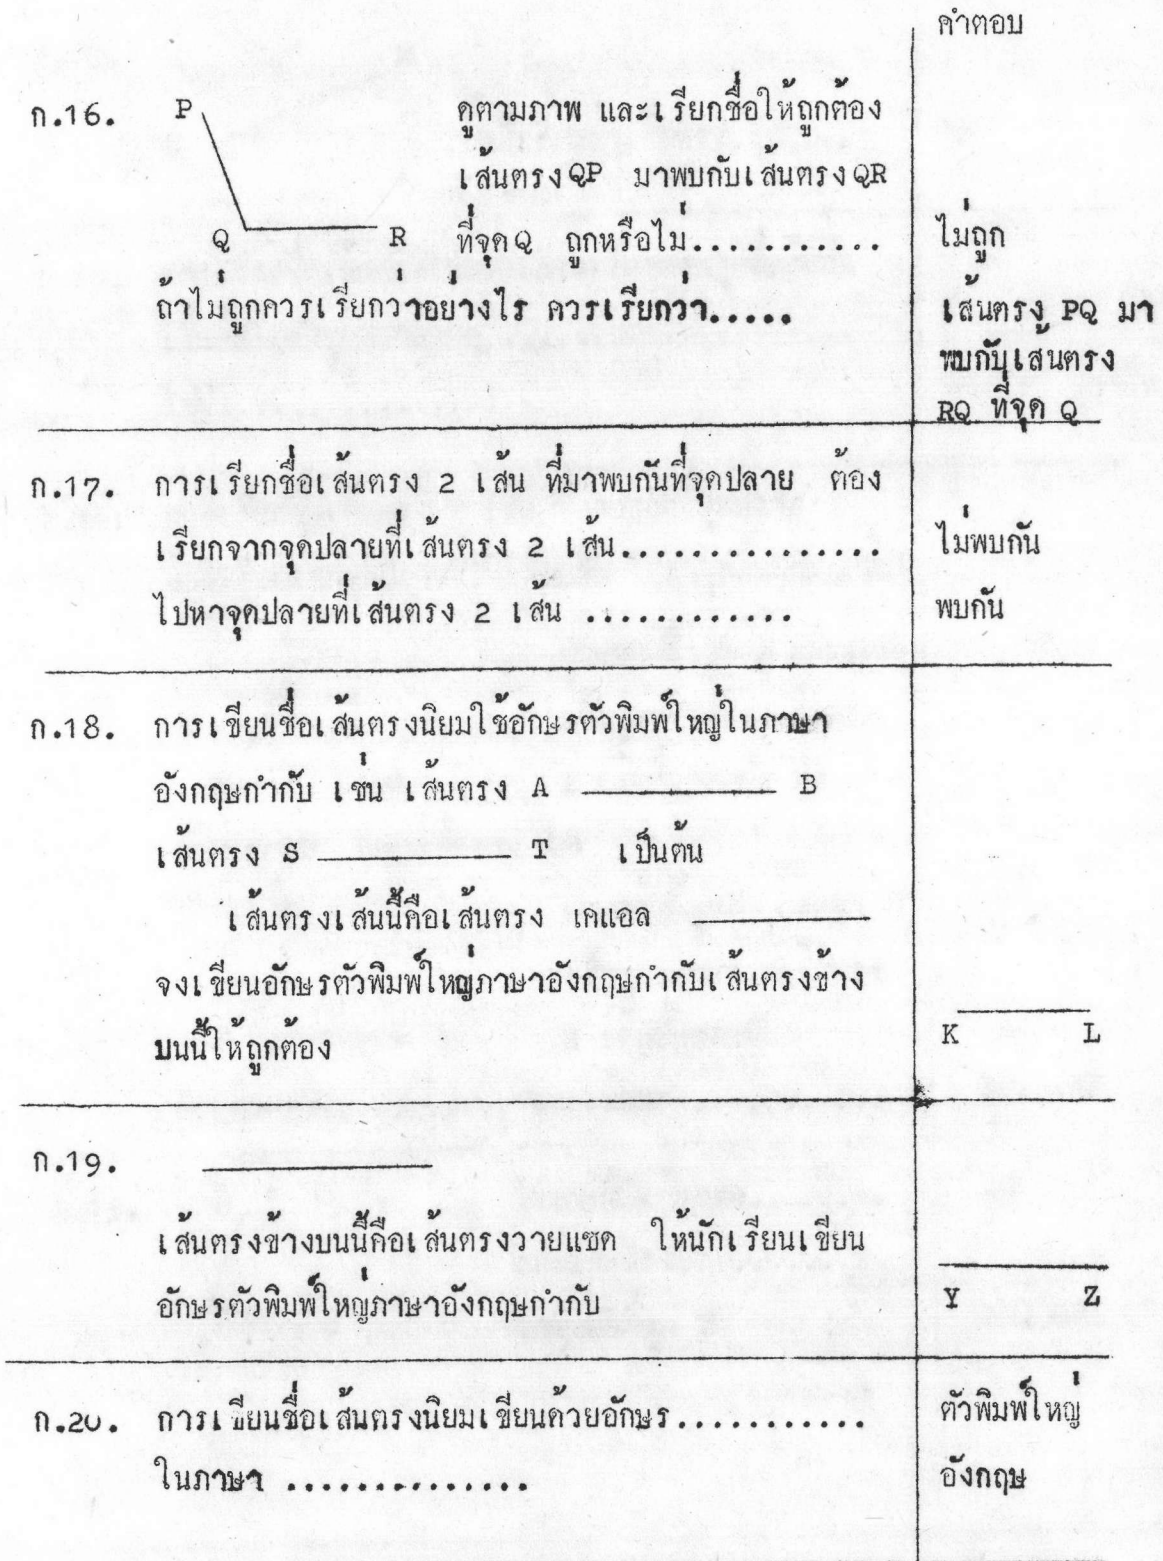 คำตอบ
ก.16. P ดูตามภาพ และเรียกชื่อให้ถูกต้อง
เส้นตรง QP มาพบกับเส้นตรง QR
Q R ที่จุด Q ถูกหรือไม่........... ไม่ถูก
ถ้าไม่ถูกควรเรียกว่าอย่างไร ควรเรียกว่า..... เส้นตรง PQ มา
พบกับเส้นตรง
RQ ที่จุด Q
ก.17. การเรียกชื่อเส้นตรง 2 เส้น ที่มาพบกันที่จุดปลาย ต้อง
เรียกจากจุดปลายที่เส้นตรง 2 เส้น................ ไม่พบกัน
ไปหาจุดปลายที่เส้นตรง 2 เส้น ............ พบกัน
ก.18. การเขียนชื่อเส้นตรงนิยมใช้อักษรตัวพิมพ์ใหญ่ในภาษา
อังกฤษกำกับ เช่น เส้นตรง A B
เส้นตรง S T เป็นต้น
เส้นตรงเส้นนี้คือเส้นตรง เคแอล
จงเขียนอักษรตัวพิมพ์ใหญ่ภาษาอังกฤษกำกับเส้นตรงข้าง
บนนี้ให้ถูกต้อง K L
ก.19.
เส้นตรงข้างบนนี้คือเส้นตรงวายแซด ให้นักเรียนเขียน
อักษรตัวพิมพ์ใหญ่ภาษาอังกฤษกำกับ Y Z
ก.20. การเขียนชื่อเส้นตรงนิยมเขียนด้วยอักษร........... ตัวพิมพ์ใหญ่
ในภาษา .............. อังกฤษ